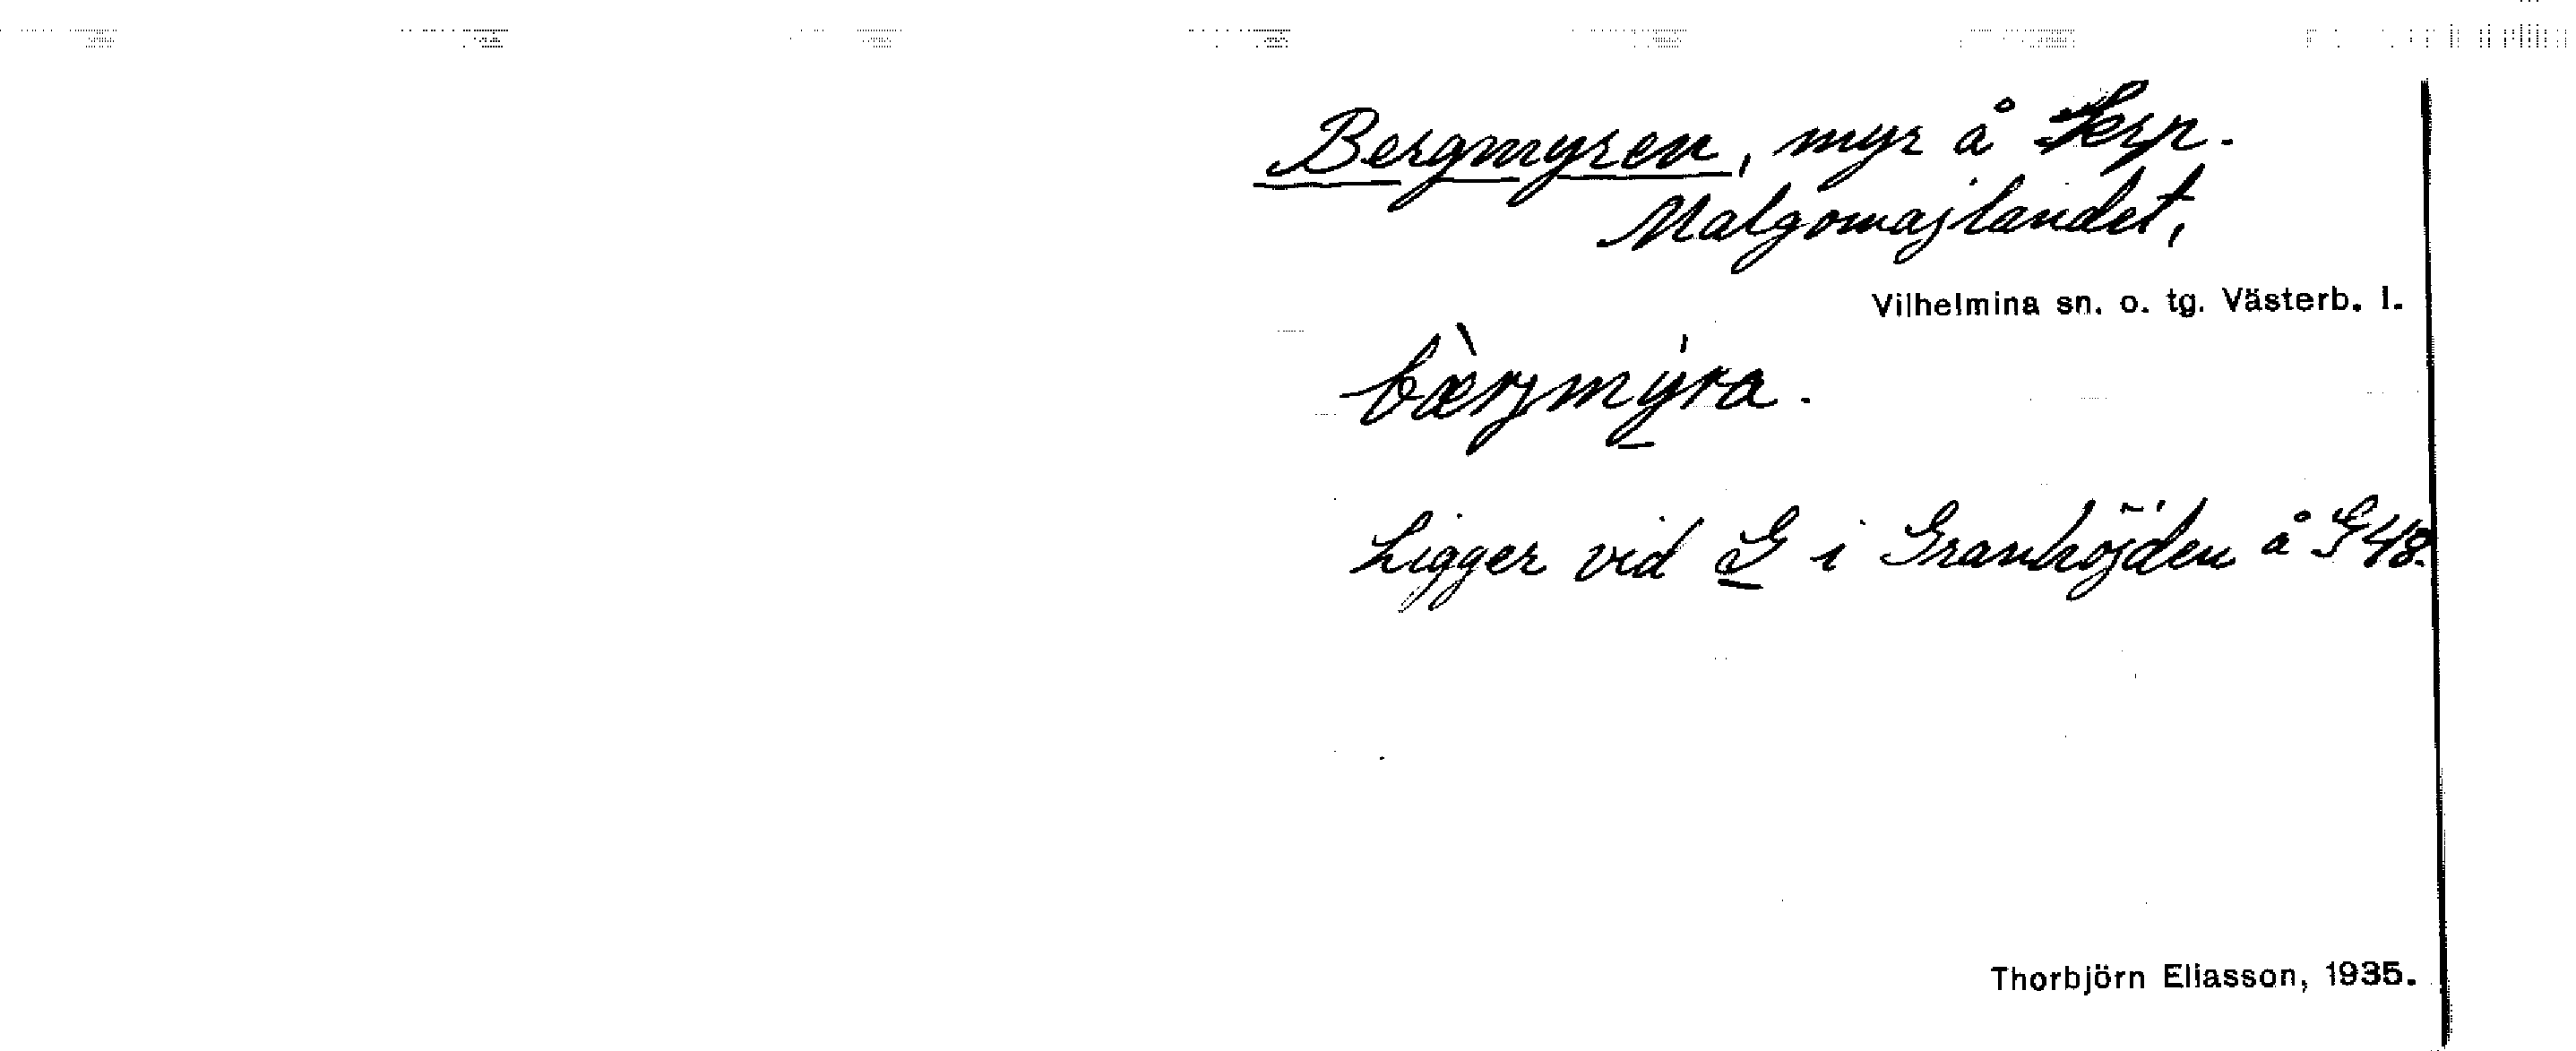 Bergmyren, myr å
Malgomajlandet,
Vilhelmina sn. o. tg. Västerb. l.
bæ̀rjmýra.
Ligger vid G i Granhöjden å G48.
Thorbjörn Eliasson, 1935.